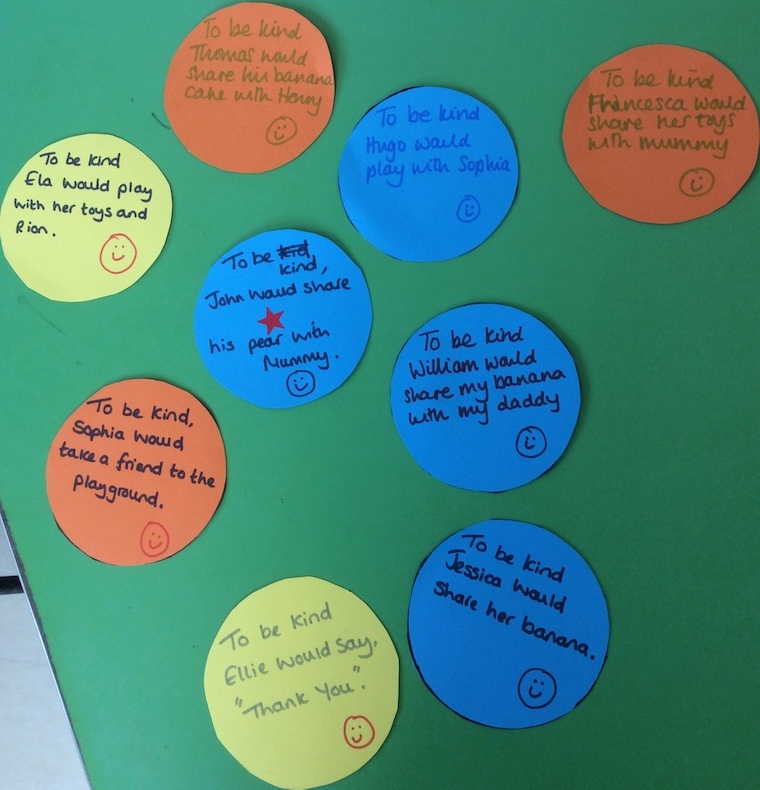 To be kind
Thomas would
share his banana
cake with Henry
To be kind
Hugo would
play with Sophia
To be kind
Francesca would
share her toys
with mummy
To be kind
Ela would play
with her toys and
Rion.
To be kid
kind,
John would share
his pear with
Mummy.
To be kind
William would
share my banana
with my daddy
To be kind,
Sophia would
take a friend to the
playground.
To be kind
Jessica would
share her banana.
To be kind
Ellie would say,
"Thank You".